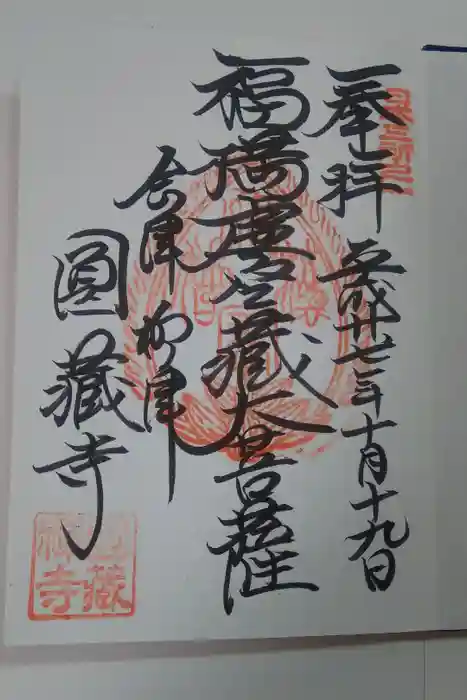 奉拝 平成廿七年十月十九日
福満虚空蔵大菩薩
会津 柳津
圓蔵寺